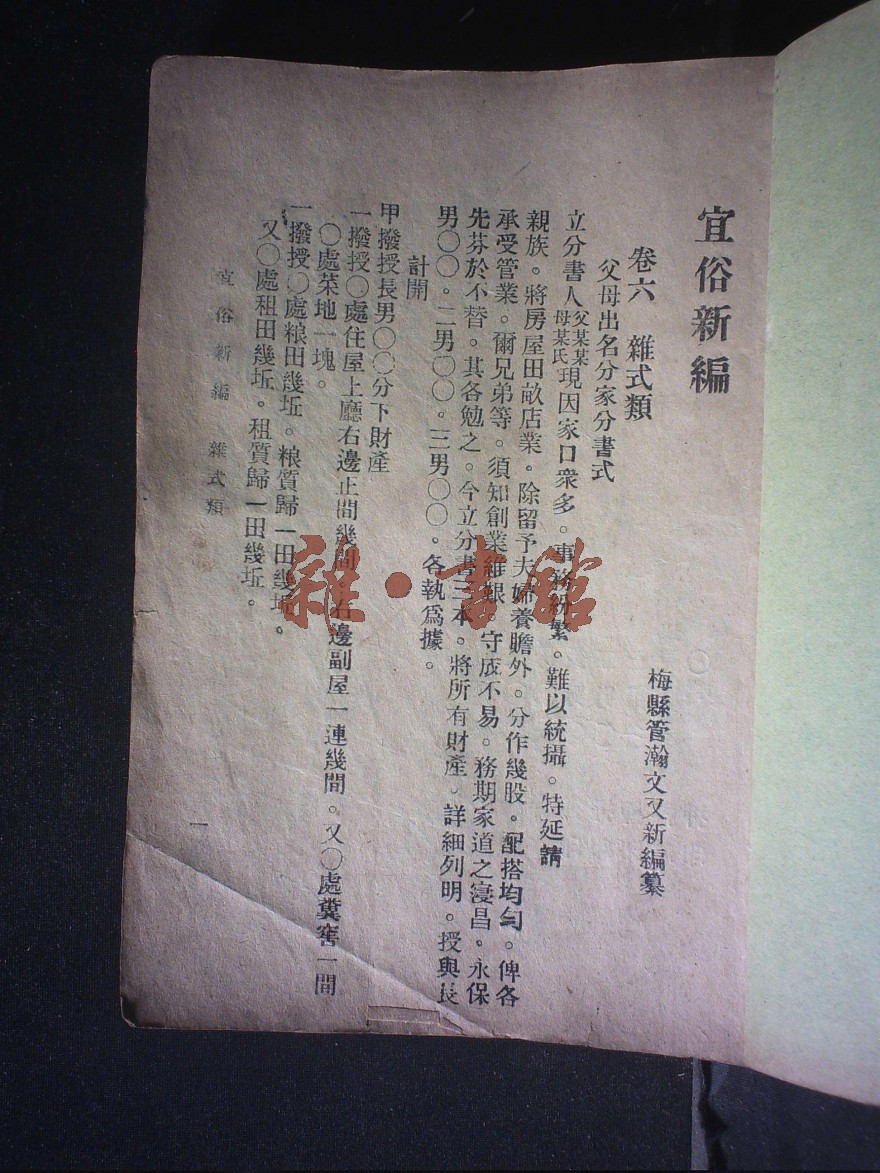 宜俗新編
梅縣管瀚文又新編纂
卷六 雜式類
父母出名分家分書式
立分書人父某某母某氏現因家口衆多。事務紛繁。難以統攝。特延請
親族。將房屋田畝店業。除留予夫婦養贍外。分作幾股。配搭均勻。俾各
承受管業。爾兄弟等。須知創業維艱。守成不易。務期家道之寖昌。永保
先芬於不替。其各勉之。今立分書三本。將所有財產。詳細列明。授與長
男〇〇。二男〇〇。三男〇〇。各執爲據。
計開
甲撥授長男〇〇分下財產
一撥授〇處住屋上廳右邊正間幾間。右邊副屋一連幾間。又〇處糞窖一間
〇處菜地一塊。
一撥授〇處粮田幾坵。粮質歸一田幾坵。
又〇處租田幾坵。租質歸一田幾坵。
宜俗新編 雜式類
一
雜·書館